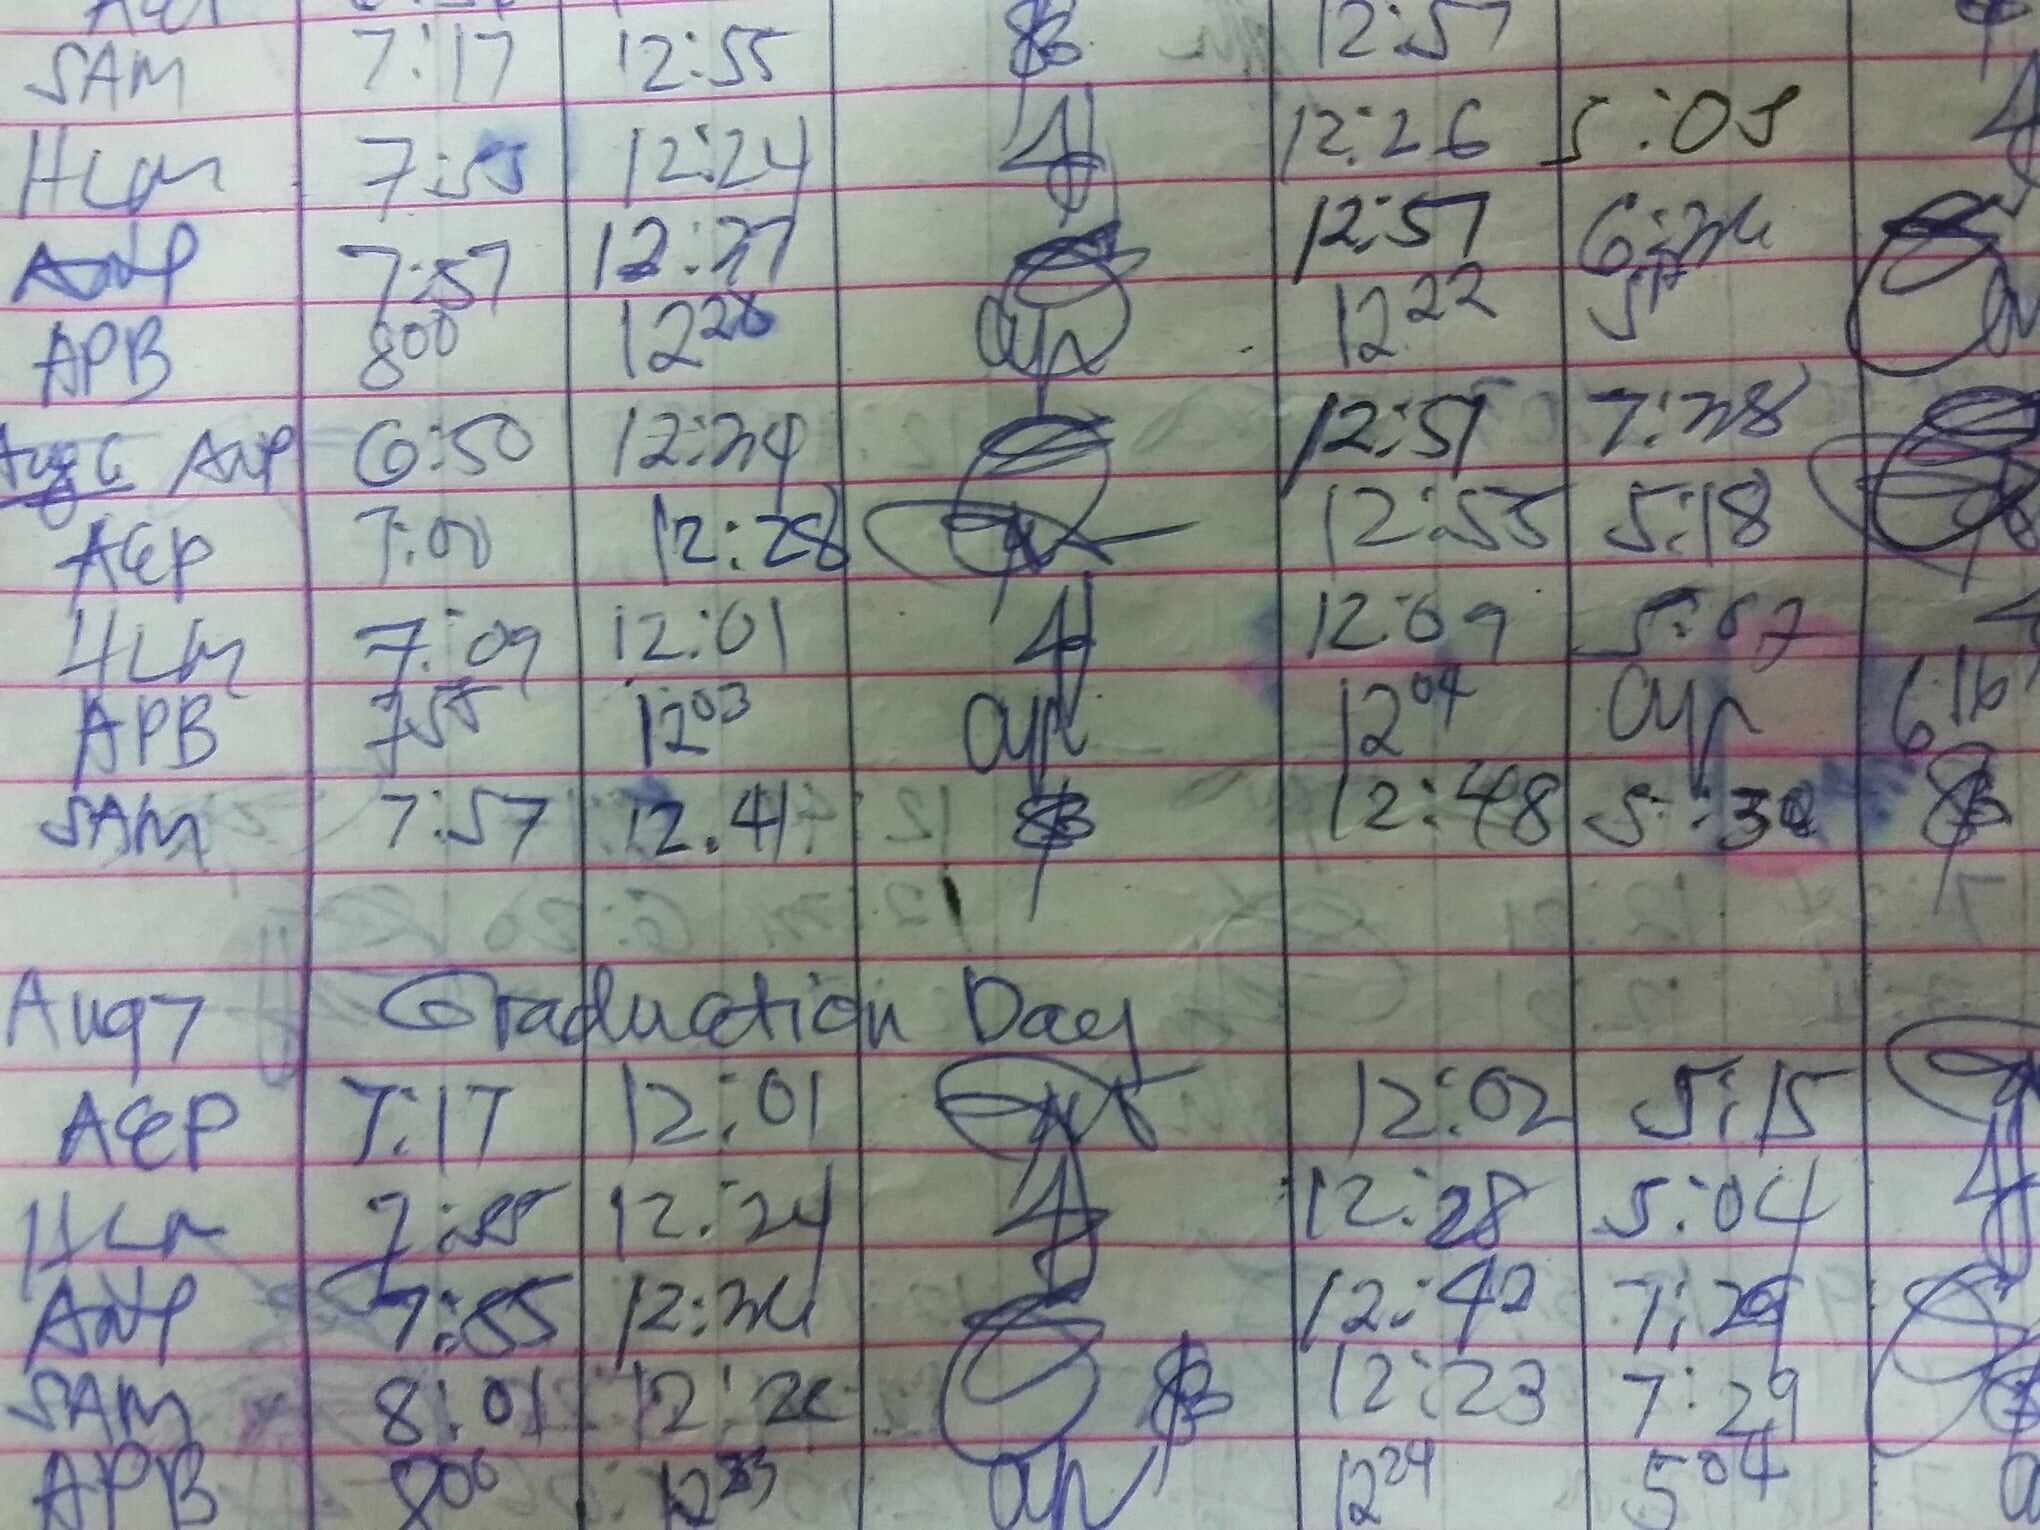 SAM 7:17 12:55 12:57
HLM 7:55 12:24 12:26 5:05
ANP 7:57 12:27 12:57
APB 800 12 28 ayp 12 22
Aug 6 ANP 6:50 12:34 12:51 7:38
AEP 7:00 12:28 12:55 5:18
HLM 7:09 12:01 12:09 5:07
APB 7 55 12 03 ayp 12 04 ayp 6 16
SAM 7:57 12.41 12:48 5:30
Aug 7 Graduation Day
AEP 7:17 12:01 12:02 5:15
HLM 7:55 12:24 12:28 5:04
ANP 7:55 12:42 7:29
SAM 8:01 12:23 7:29
APB 8 06 12 23 ayp 12 24 5 04